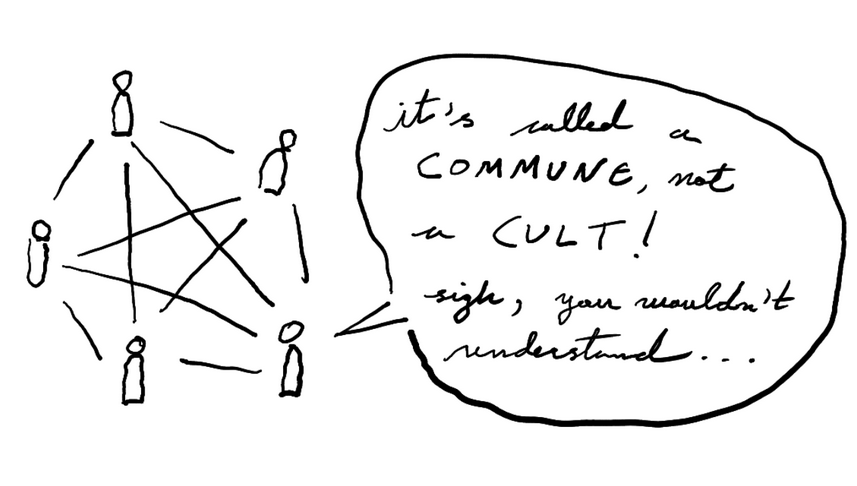 it's called a
COMMUNE, not
a CULT!
sigh, you wouldn't
understand...